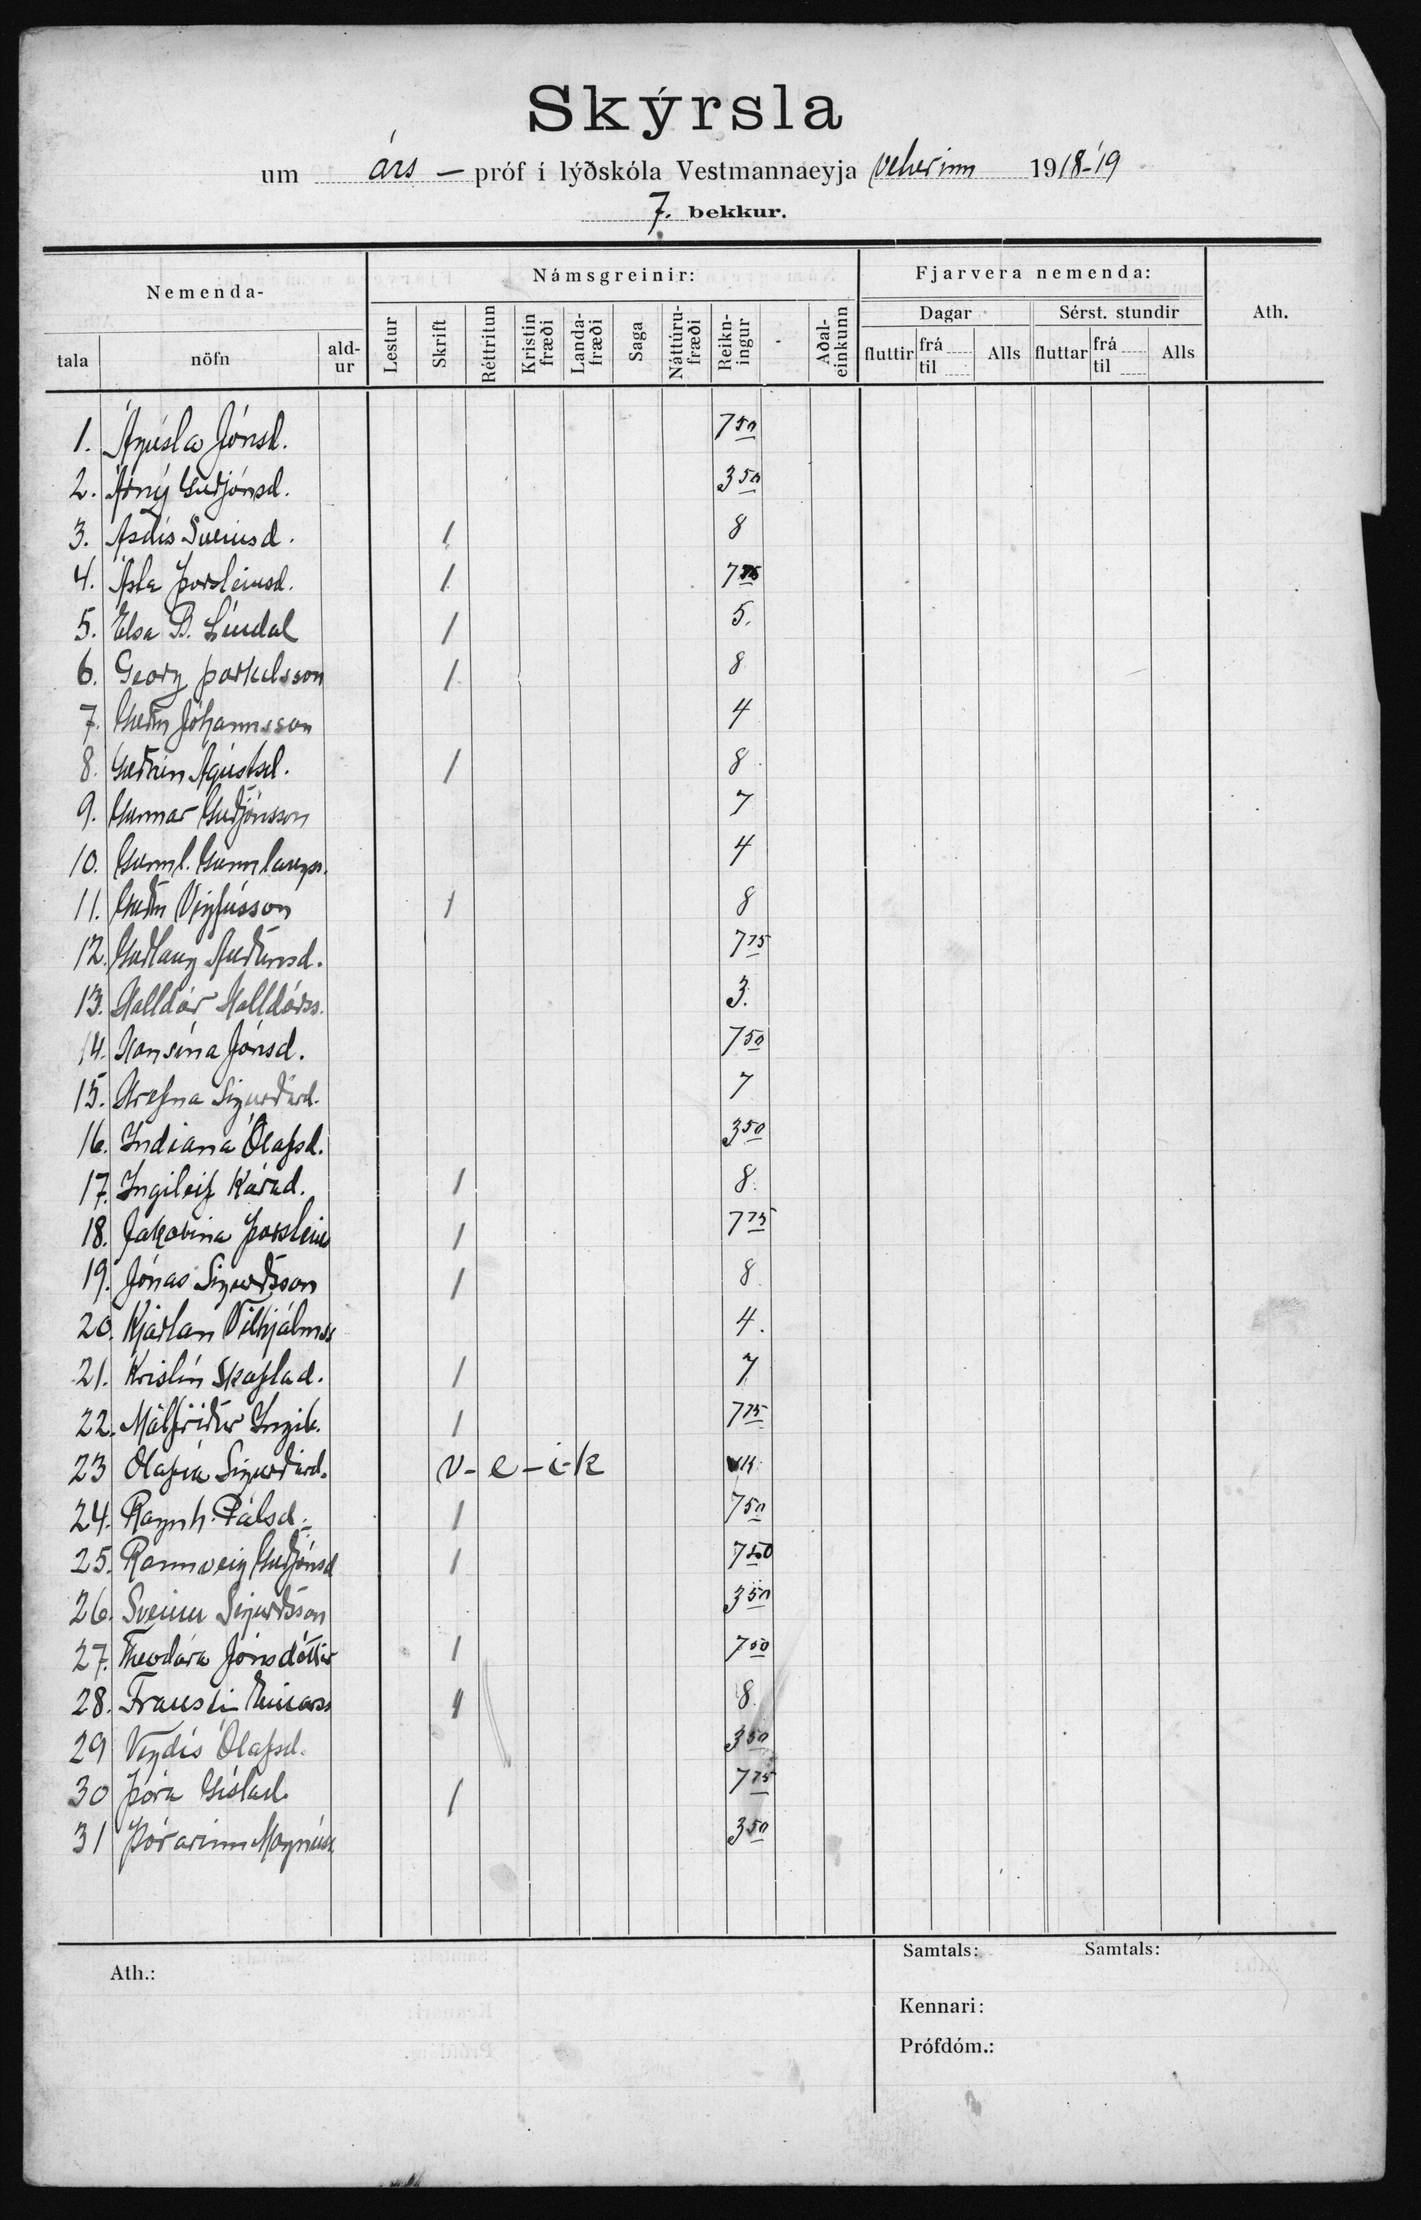 Skýrsla
um árs - próf í lýðskóla Vestmannaeyja veturinn 1918-'19
7. bekkur.
Nemenda- Námsgreinir: Fjarvera nemenda: Ath.
Dagar Sérst. stundir
tala nöfn ald-ur Lestur Skrift Réttritun Kristin fræði Landa-fræði Saga Náttúru-fræði Reikn-ingur Aðal-einkunn fluttir frá til Alls fluttar frá til Alls
1. Ágústa Jónsd. 7 50
2. Árný Guðjónsd. 3 50
3. Ásdís Sveinsd. 1 8
4. Ásta Þorsteinsd. 1 7 75
5. Elsa D. Líndal 1 5.
6. Georg Þorkelsson 1 8
7. Guðm Jóhannsson 4
8. Guðrún Ágústsd. 1 8
9. Gunnar Guðjónsson 7
10. Gunnl. Gunnlaugss. 4
11. Guðm Vigfússon 1 8
12. Guðlaug Auðunsd. 7 75
13. Halldór Halldórss. 3.
14. Hansína Jónsd. 7 50
15. Hrefna Sigurðard. 7
16. Indiana Ólafsd. 3 50
17. Ingileif Kárad. 1 8
18. Jakobína Þorsteins 1 7 75
19. Jónas Sigurðsson 1 8
20. Kjartan Vilhjálmss 4.
21. Kristín Skaptad. 1 7
22. Málfríður Ingib. 1 7 75
23 Ólafía Sigurðard. v-e-i-k
24. Ragnh. Pálsd. 1 7 50
25. Rannveig Guðjónsd 1 7 50
26. Sveinn Sigurðsson 3 50
27. Theodóra Jónsdóttir 1 7 50
28. Trausti Einarss 1 8
29 Vigdís Ólafsd. 3 50
30 Þóra Gíslad. 1 7 75
31 Þórarinn Magnúss. 3 50
Ath.:
Samtals: Samtals:
Kennari:
Prófdóm.: